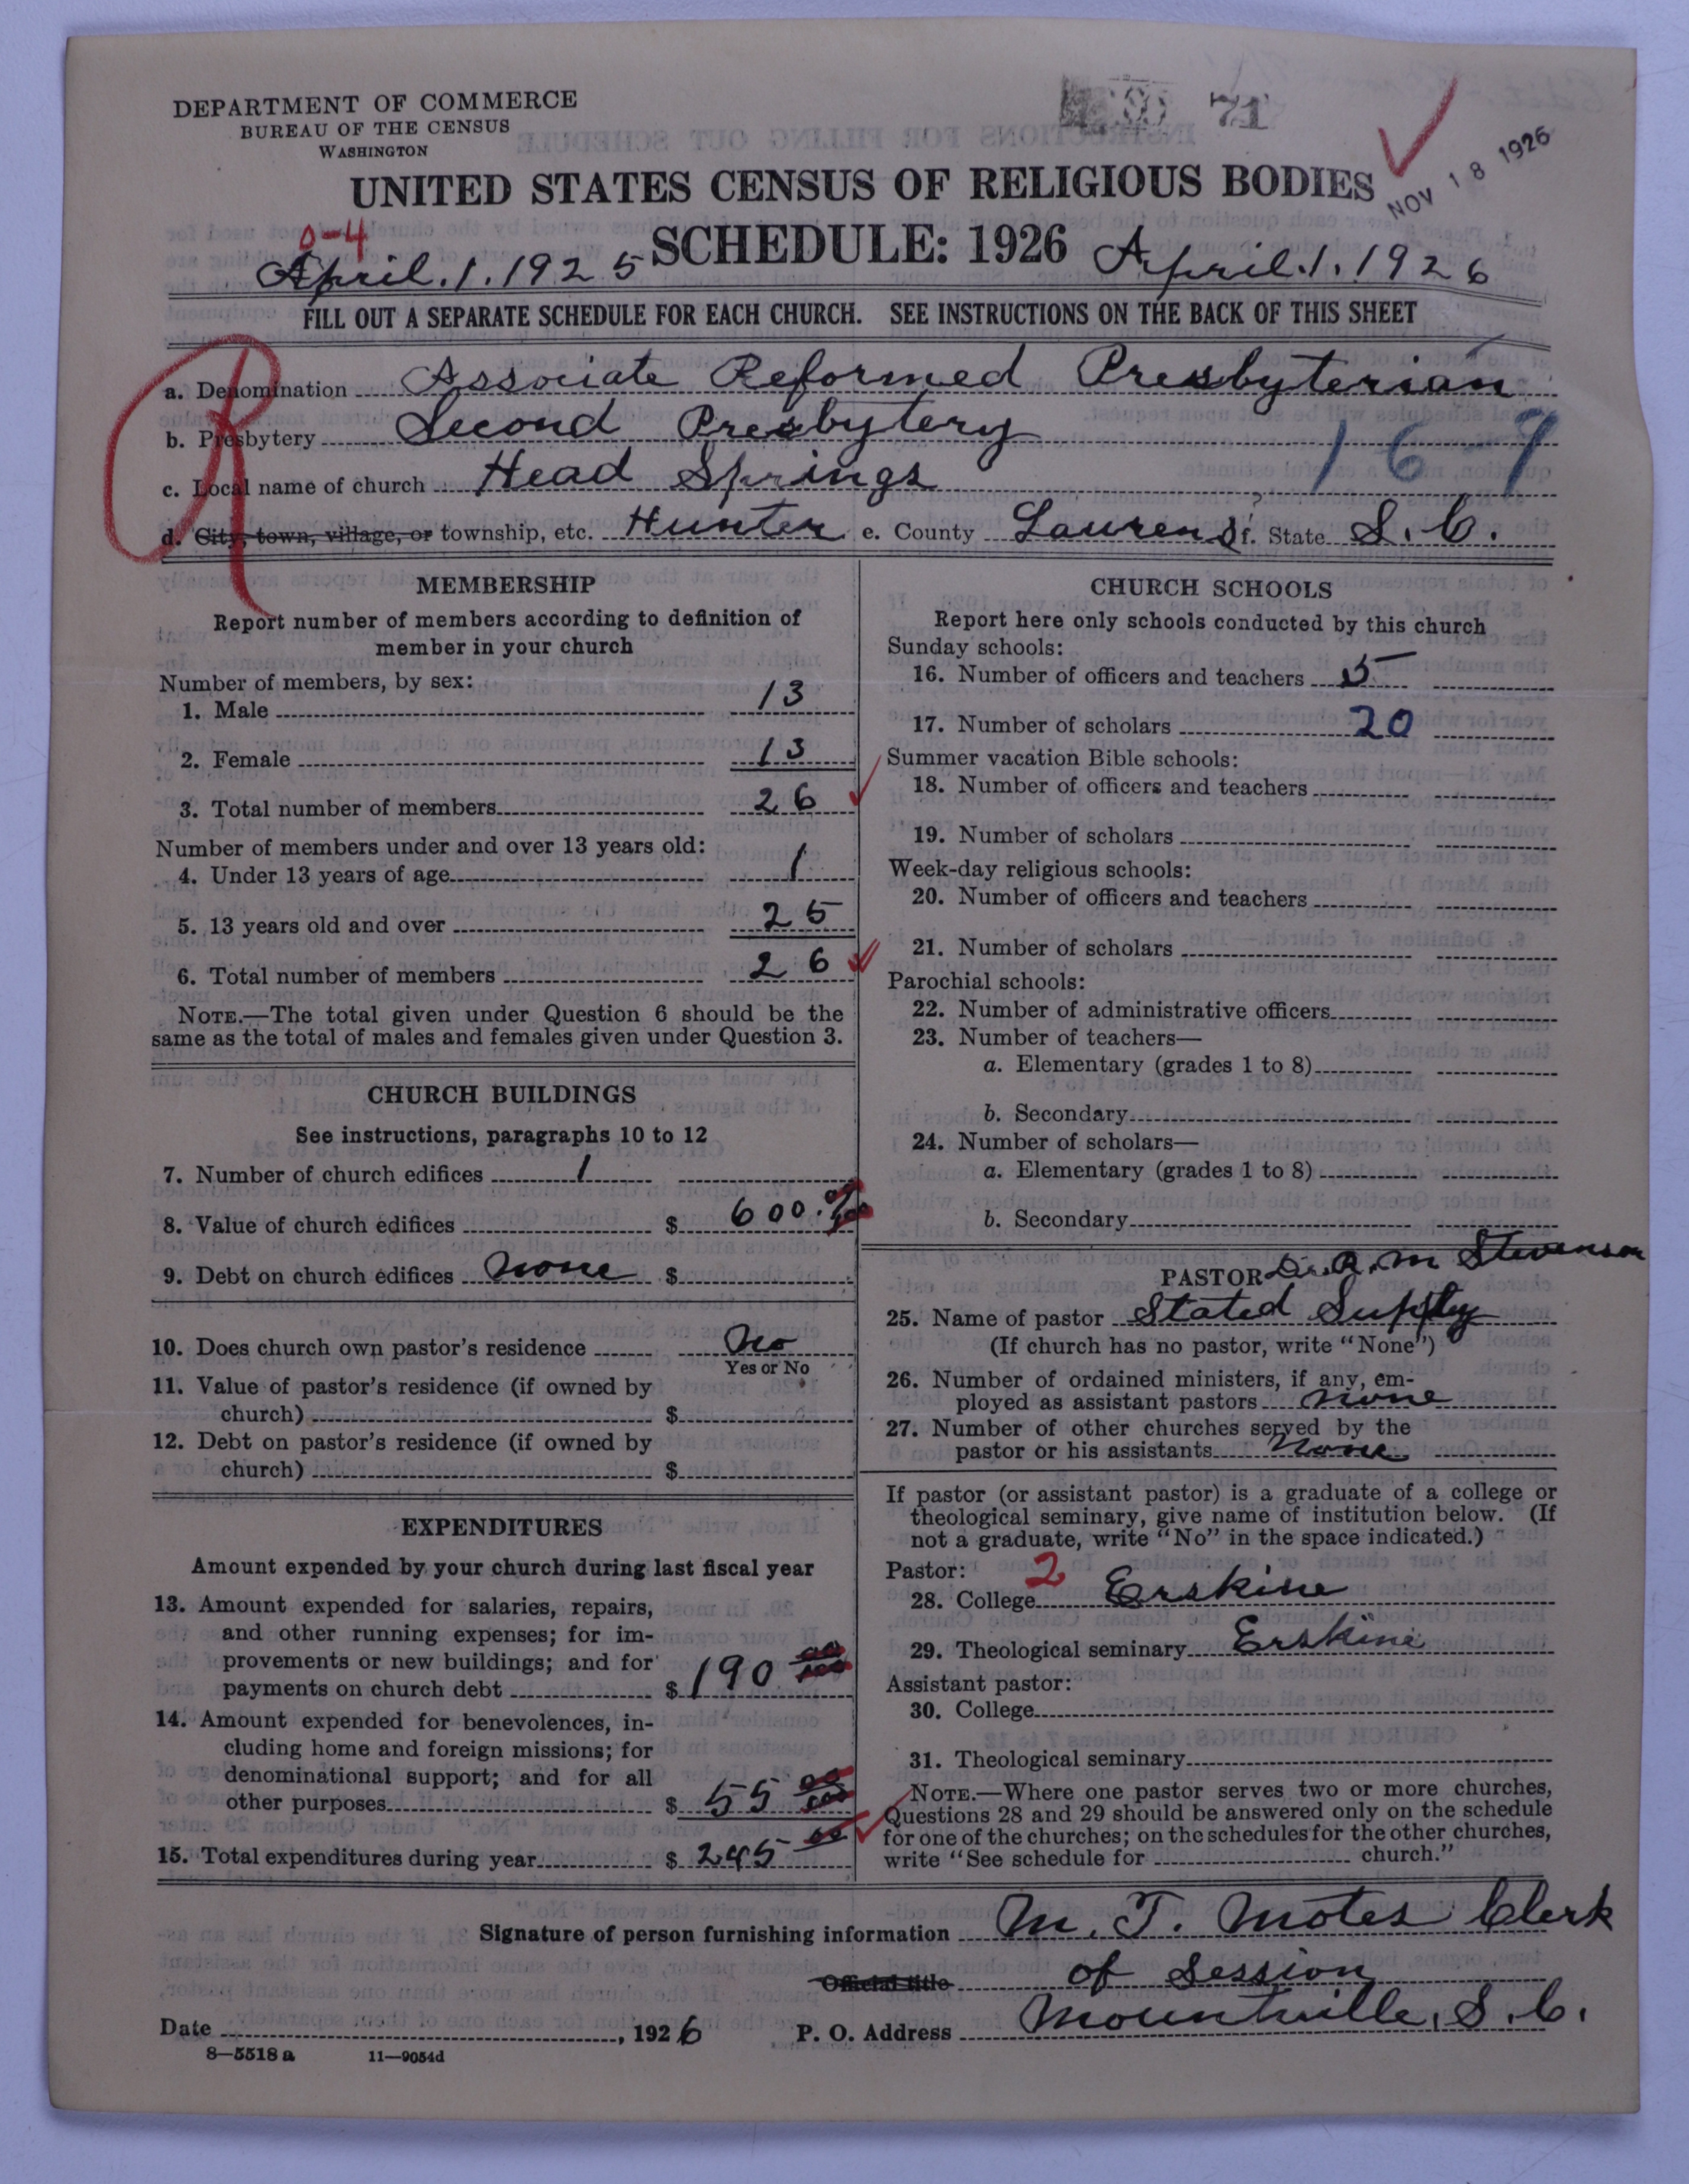 DEPARTMENT OF COMMERCE
BUREAU OF THE CENSUS
WASHINGTON
71
NOV 18 1926
UNITED STATES CENSUS OF RELIGIOUS BODIES
0-4
April. 1. 1925 SCHEDULE: 1926 April. 1. 1926
FILL OUT A SEPARATE SCHEDULE FOR EACH CHURCH. SEE INSTRUCTIONS ON THE BACK OF THIS SHEET
R
a. Denomination Associate Reformed Presbyterian
b. Presbytery Second Presbytery
16-9
c. Local name of church Head Springs
d. City, town, village, or township, etc. Hunter e. County Laurens f. State S. C.
MEMBERSHIP
Report number of members according to definition of
member in your church
Number of members, by sex:
1. Male 13
2. Female 13
3. Total number of members 26
Number of members under and over 13 years old:
4. Under 13 years of age 1
5. 13 years old and over 25
6. Total number of members 26
NOTE.—The total given under Question 6 should be the
same as the total of males and females given under Question 3.
CHURCH BUILDINGS
See instructions, paragraphs 10 to 12
7. Number of church edifices 1
8. Value of church edifices $ 600.
9. Debt on church edifices none $
10. Does church own pastor's residence No
Yes or No
11. Value of pastor's residence (if owned by
church) $
12. Debt on pastor's residence (if owned by
church) $
EXPENDITURES
Amount expended by your church during last fiscal year
13. Amount expended for salaries, repairs,
and other running expenses; for im-
provements or new buildings; and for
payments on church debt $ 190 00/100
14. Amount expended for benevolences, in-
cluding home and foreign missions; for
denominational support; and for all
other purposes $ 55 00/100
15. Total expenditures during year $ 245 00
CHURCH SCHOOLS
Report here only schools conducted by this church
Sunday schools:
16. Number of officers and teachers 5
17. Number of scholars 20
Summer vacation Bible schools:
18. Number of officers and teachers
19. Number of scholars
Week-day religious schools:
20. Number of officers and teachers
21. Number of scholars
Parochial schools:
22. Number of administrative officers
23. Number of teachers—
a. Elementary (grades 1 to 8)
b. Secondary
24. Number of scholars—
a. Elementary (grades 1 to 8)
b. Secondary
PASTOR Dr. R. M Stevenson
25. Name of pastor Stated Supply
(If church has no pastor, write "None")
26. Number of ordained ministers, if any, em-
ployed as assistant pastors none
27. Number of other churches served by the
pastor or his assistants None
If pastor (or assistant pastor) is a graduate of a college or
theological seminary, give name of institution below. (If
not a graduate, write "No" in the space indicated.)
Pastor: 2
28. College Erskine
29. Theological seminary Erskine
Assistant pastor:
30. College
31. Theological seminary
NOTE.—Where one pastor serves two or more churches,
Questions 28 and 29 should be answered only on the schedule
for one of the churches; on the schedules for the other churches,
write "See schedule for church."
Signature of person furnishing information M. T. Motes Clerk
Official title of Session
Date , 1926 P. O. Address Mountville, S. C.
8—5518 a 11—9054d